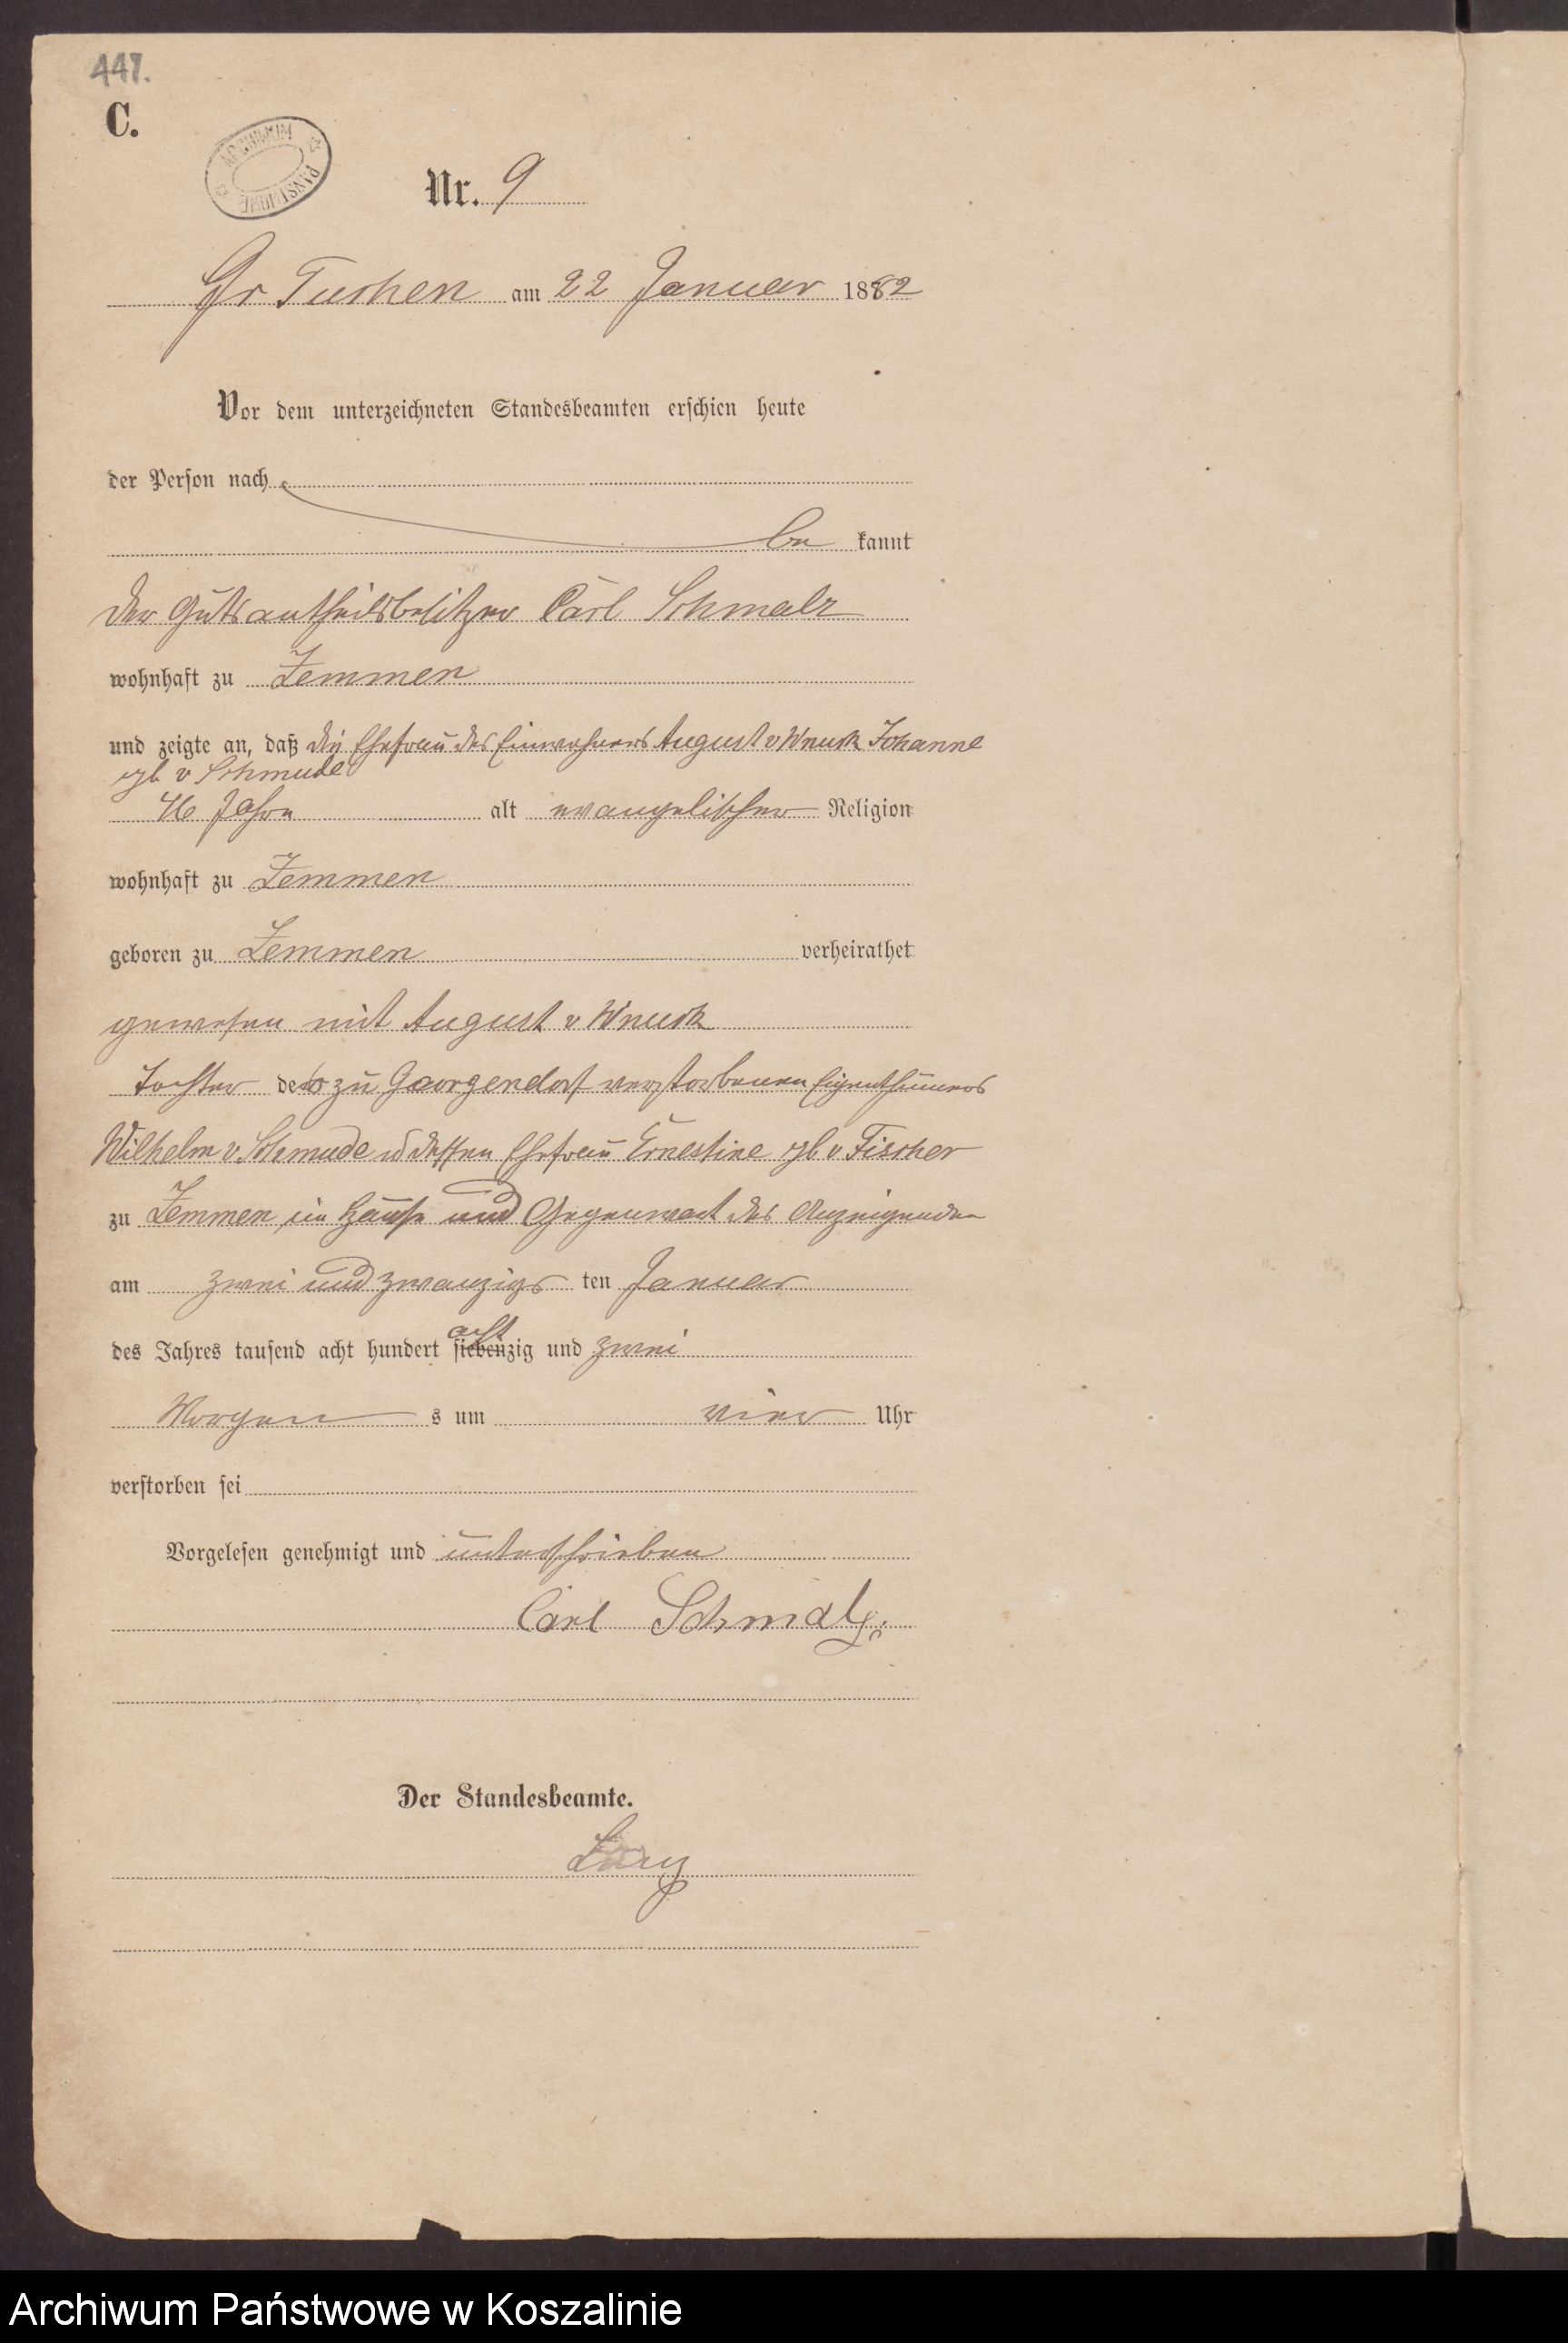 447.
C.
ARCHIWUM PAŃSTWOWE
Nr. 9
Gr Tuchen am 22 Januar 1882
Vor dem unterzeichneten Standesbeamten erschien heute
der Person nach
be kannt
der Gutsantheilsbesitzer Carl Schmalz
wohnhaft zu Zemmen
und zeigte an, daß die Ehefrau des Einwohners August v Wnuck Johanne
geb v Schmude
46 Jahre alt evangelischer Religion
wohnhaft zu Zemmen
geboren zu Zemmen verheirathet
gewesen mit August v Wnuck
Tochter des zu Georgendorf verstorbenen Eigenthümers
Wilhelm v. Schmude u dessen Ehefrau Ernestine geb v Fischer
zu Zemmen im Hause und Gegenwart des Anzeigenden
am zwei und zwanzigs ten Januar
des Jahres tausend acht hundert siebenzig acht und zwei
Morgen s um vier Uhr
verstorben sei
Vorgelesen genehmigt und unterschrieben
Carl Schmalz.
Der Standesbeamte.
Archiwum Państwowe w Koszalinie